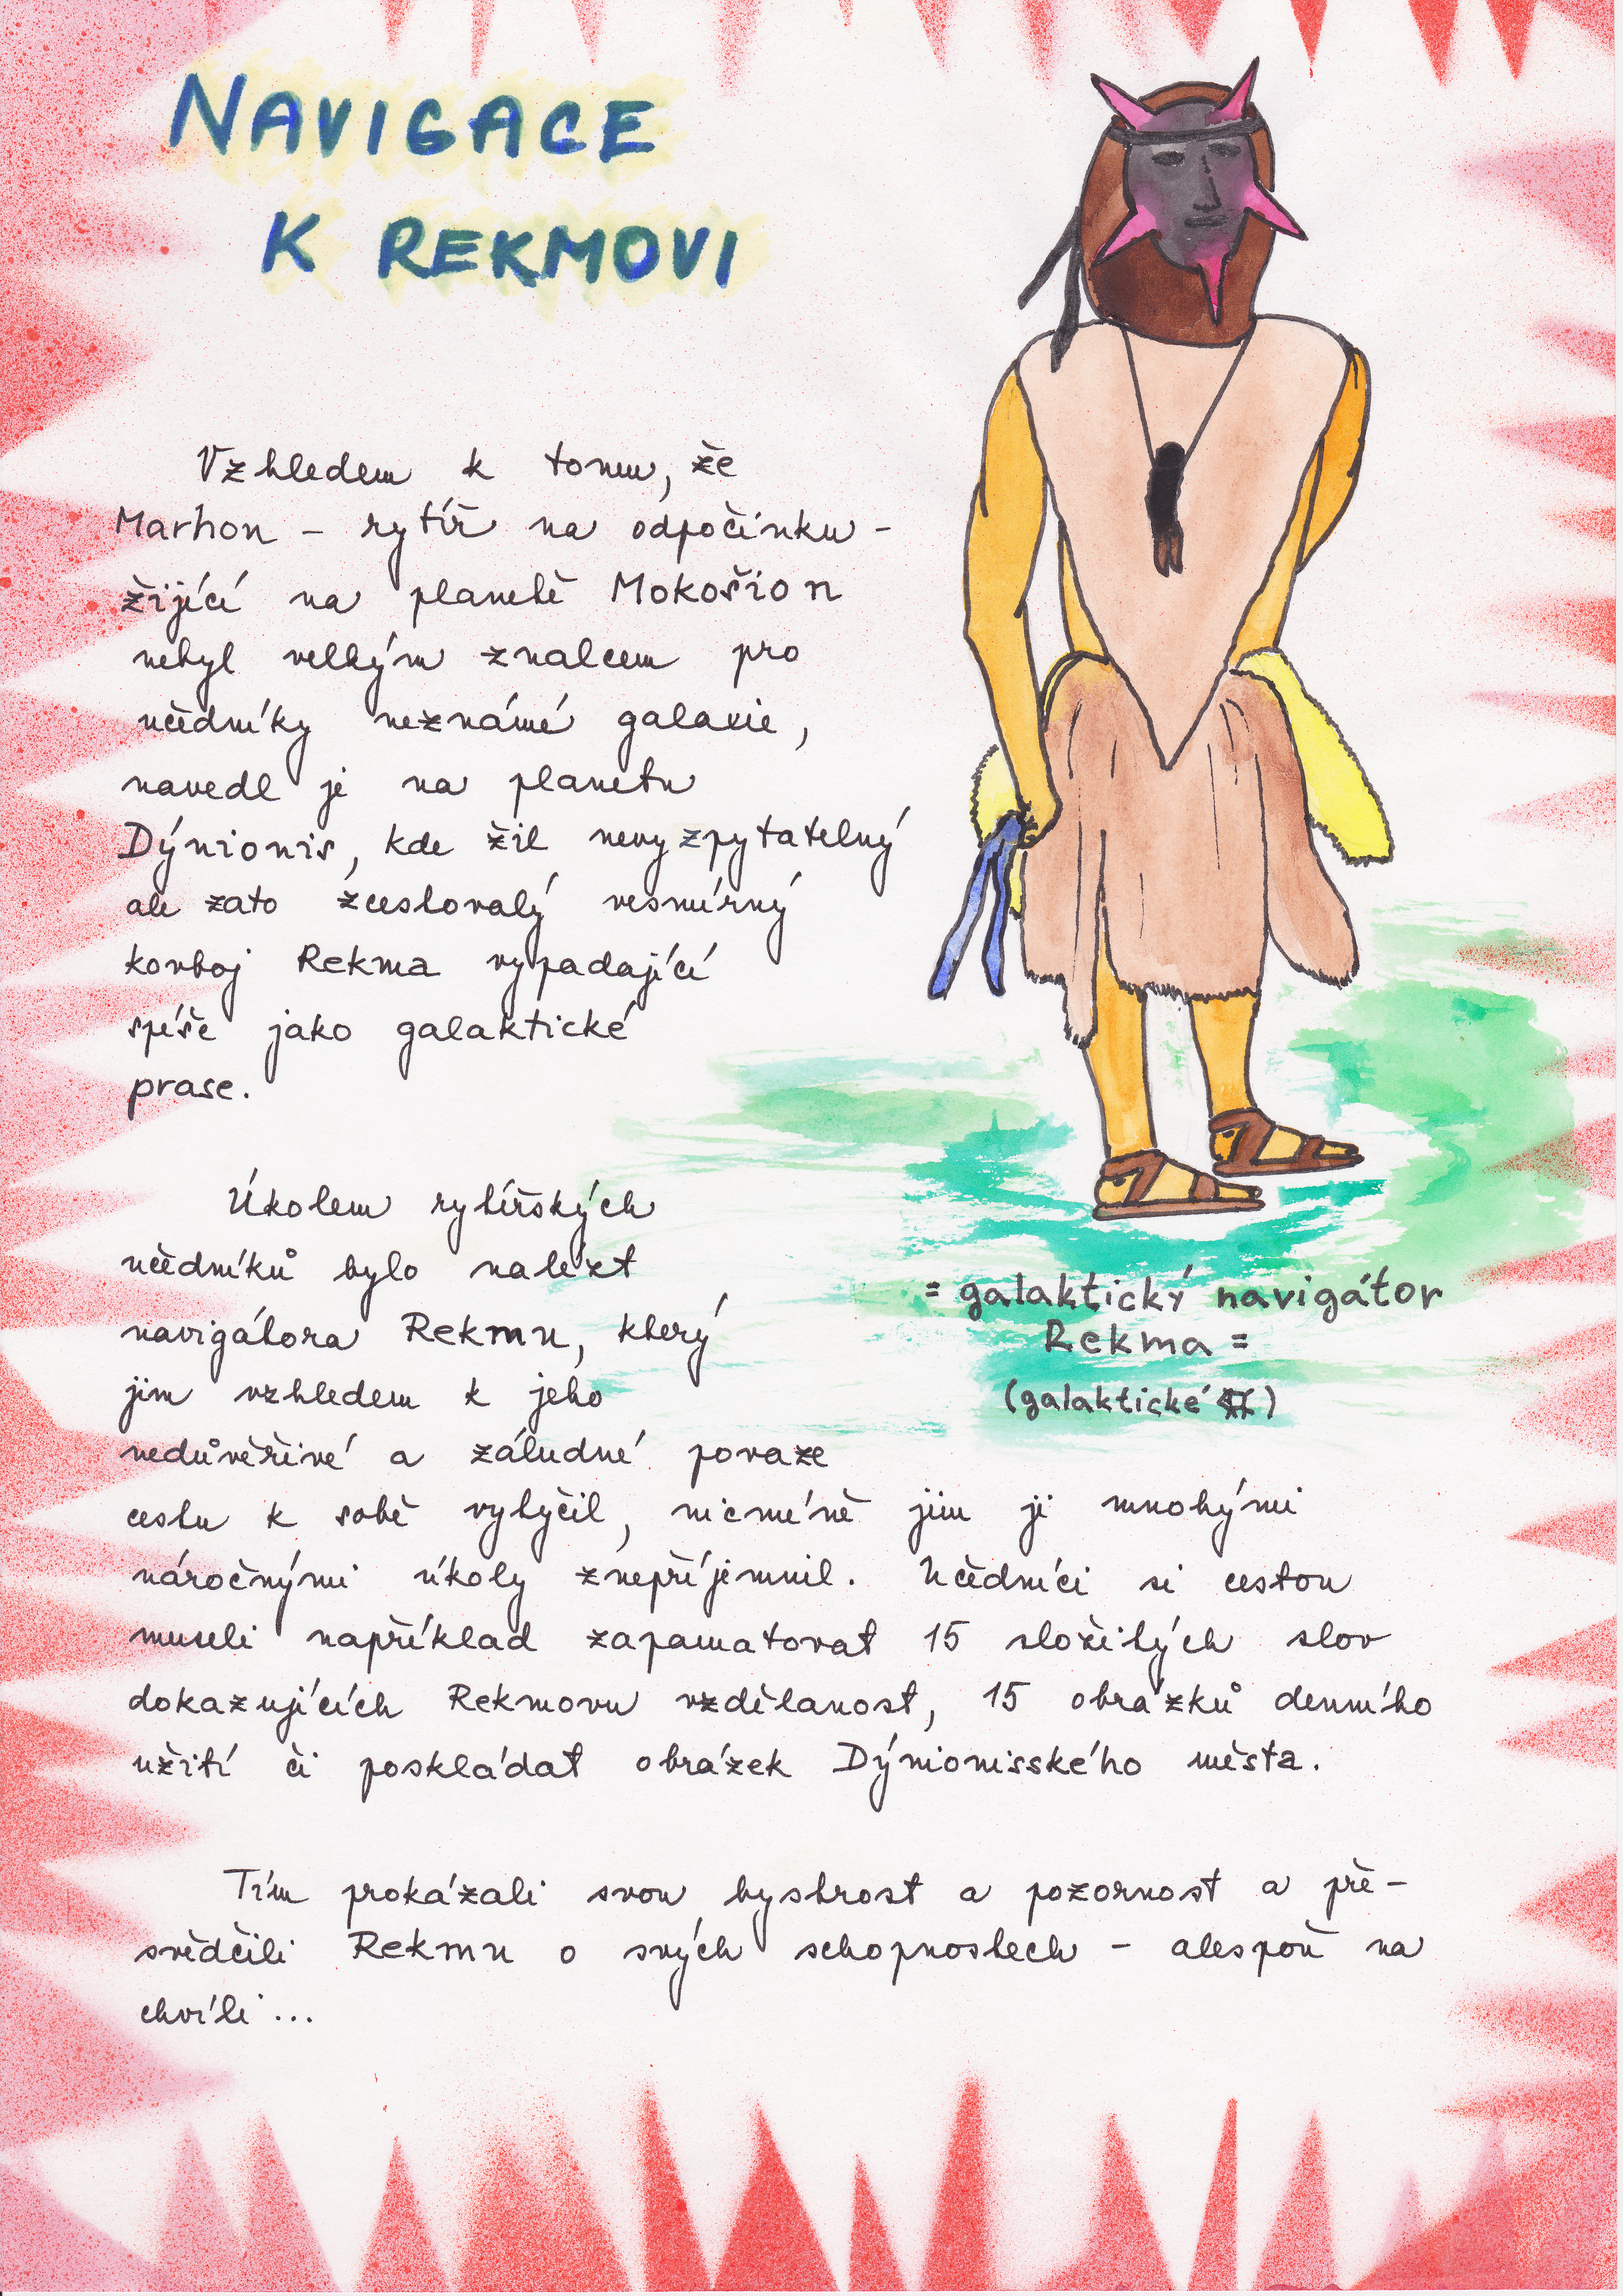 NAVIGACE
K REKMOVI
Vzhledem k tomu, že
Marhon - rytíř na odpočinku -
žijící na planetě Mokošion
nebyl velkým znalcem pro
učedníky neznámé galaxie,
navedl je na planetu
Dýnionis, kde žil nevyzpytatelný
ale zato zcestovalý vesmírný
kovboj Rekma vypadající
spíše jako galaktické
prase.
Úkolem rytířských
učedníků bylo nalézt
navigátora Rekmu, který
jim vzhledem k jeho
nedůvěřivé a záludné povaze
cestu k sobě vytyčil, nicméně jim ji mnohými
náročnými úkoly znepříjemnil. Učedníci si cestou
museli například zapamatovat 15 složitých slov
dokazujících Rekmovu vzdělanost, 15 obrázků denního
užití či poskládat obrázek Dýnionisského města.
Tím prokázali svou bystrost a pozornost a pře-
svědčili Rekmu o svých schopnostech - alespoň na
chvíli...
= galaktický navigátor
Rekma =
(galaktické)